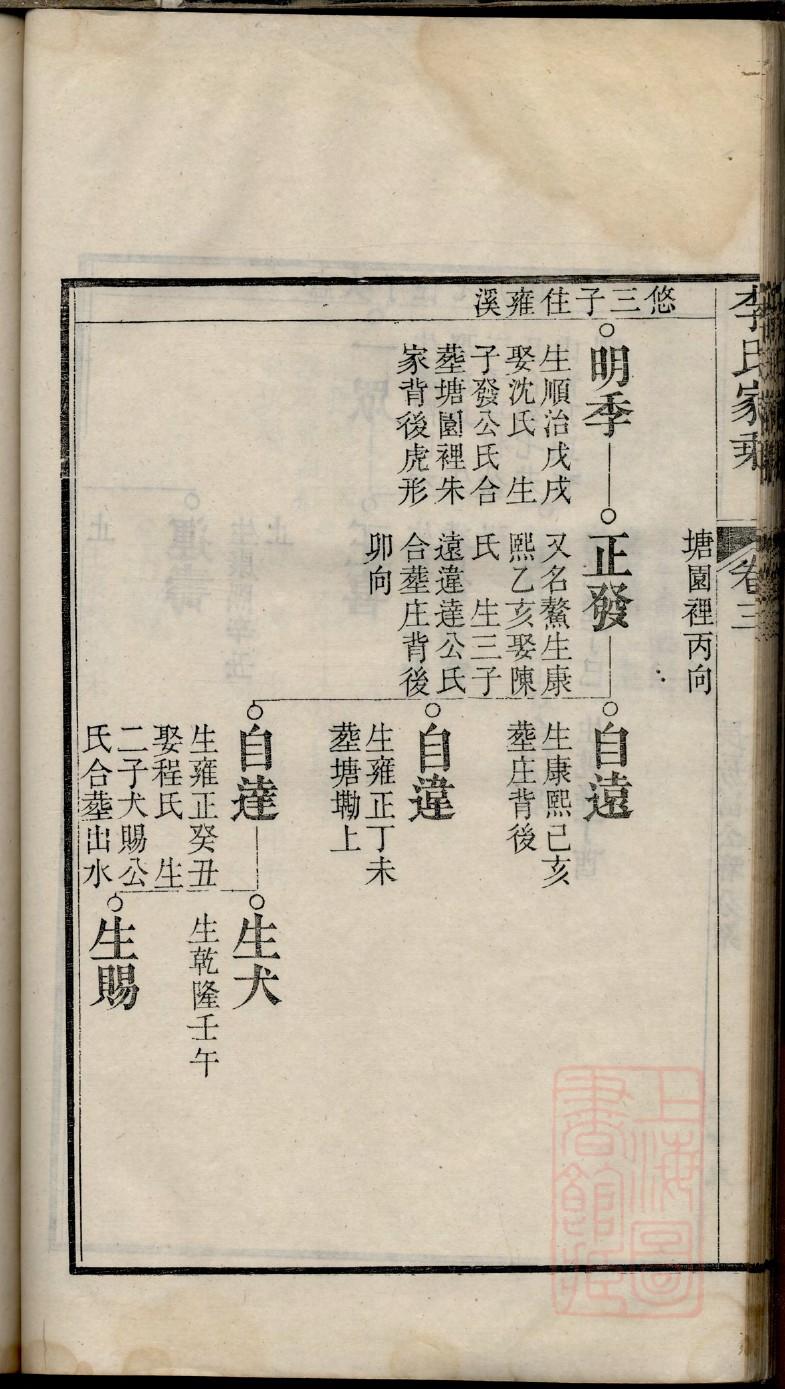 李氏家乘
卷三
塘園裡丙向
悠三子住雍溪
明季
生順治戊戌
娶沈氏 生
子發公氏合
塟塘園裡朱
家背後虎形
正發
又名鰲生康
熙乙亥娶陳
氏 生三子
遠違達公氏
合塟庄背後
卯向
自遠
生康熙己亥
塟庄背後
自違
生雍正丁未
塟塘墈上
自達
生雍正癸丑
娶程氏 生
二子犬賜公
氏合塟出水
生犬
生乾隆壬午
生賜
上海圖
書館藏